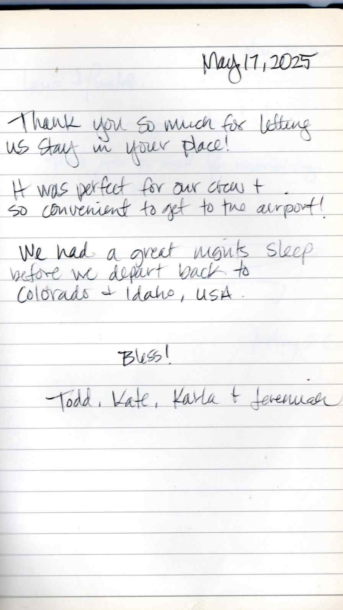 May 17, 2025
Thank you so much for letting
us stay in your place!
It was perfect for our crew +
so convenient to get to the airport!
We had a great nights sleep
before we depart back to
Colorado + Idaho, USA.
Bless!
Todd, Kate, Karla + Jeremiah